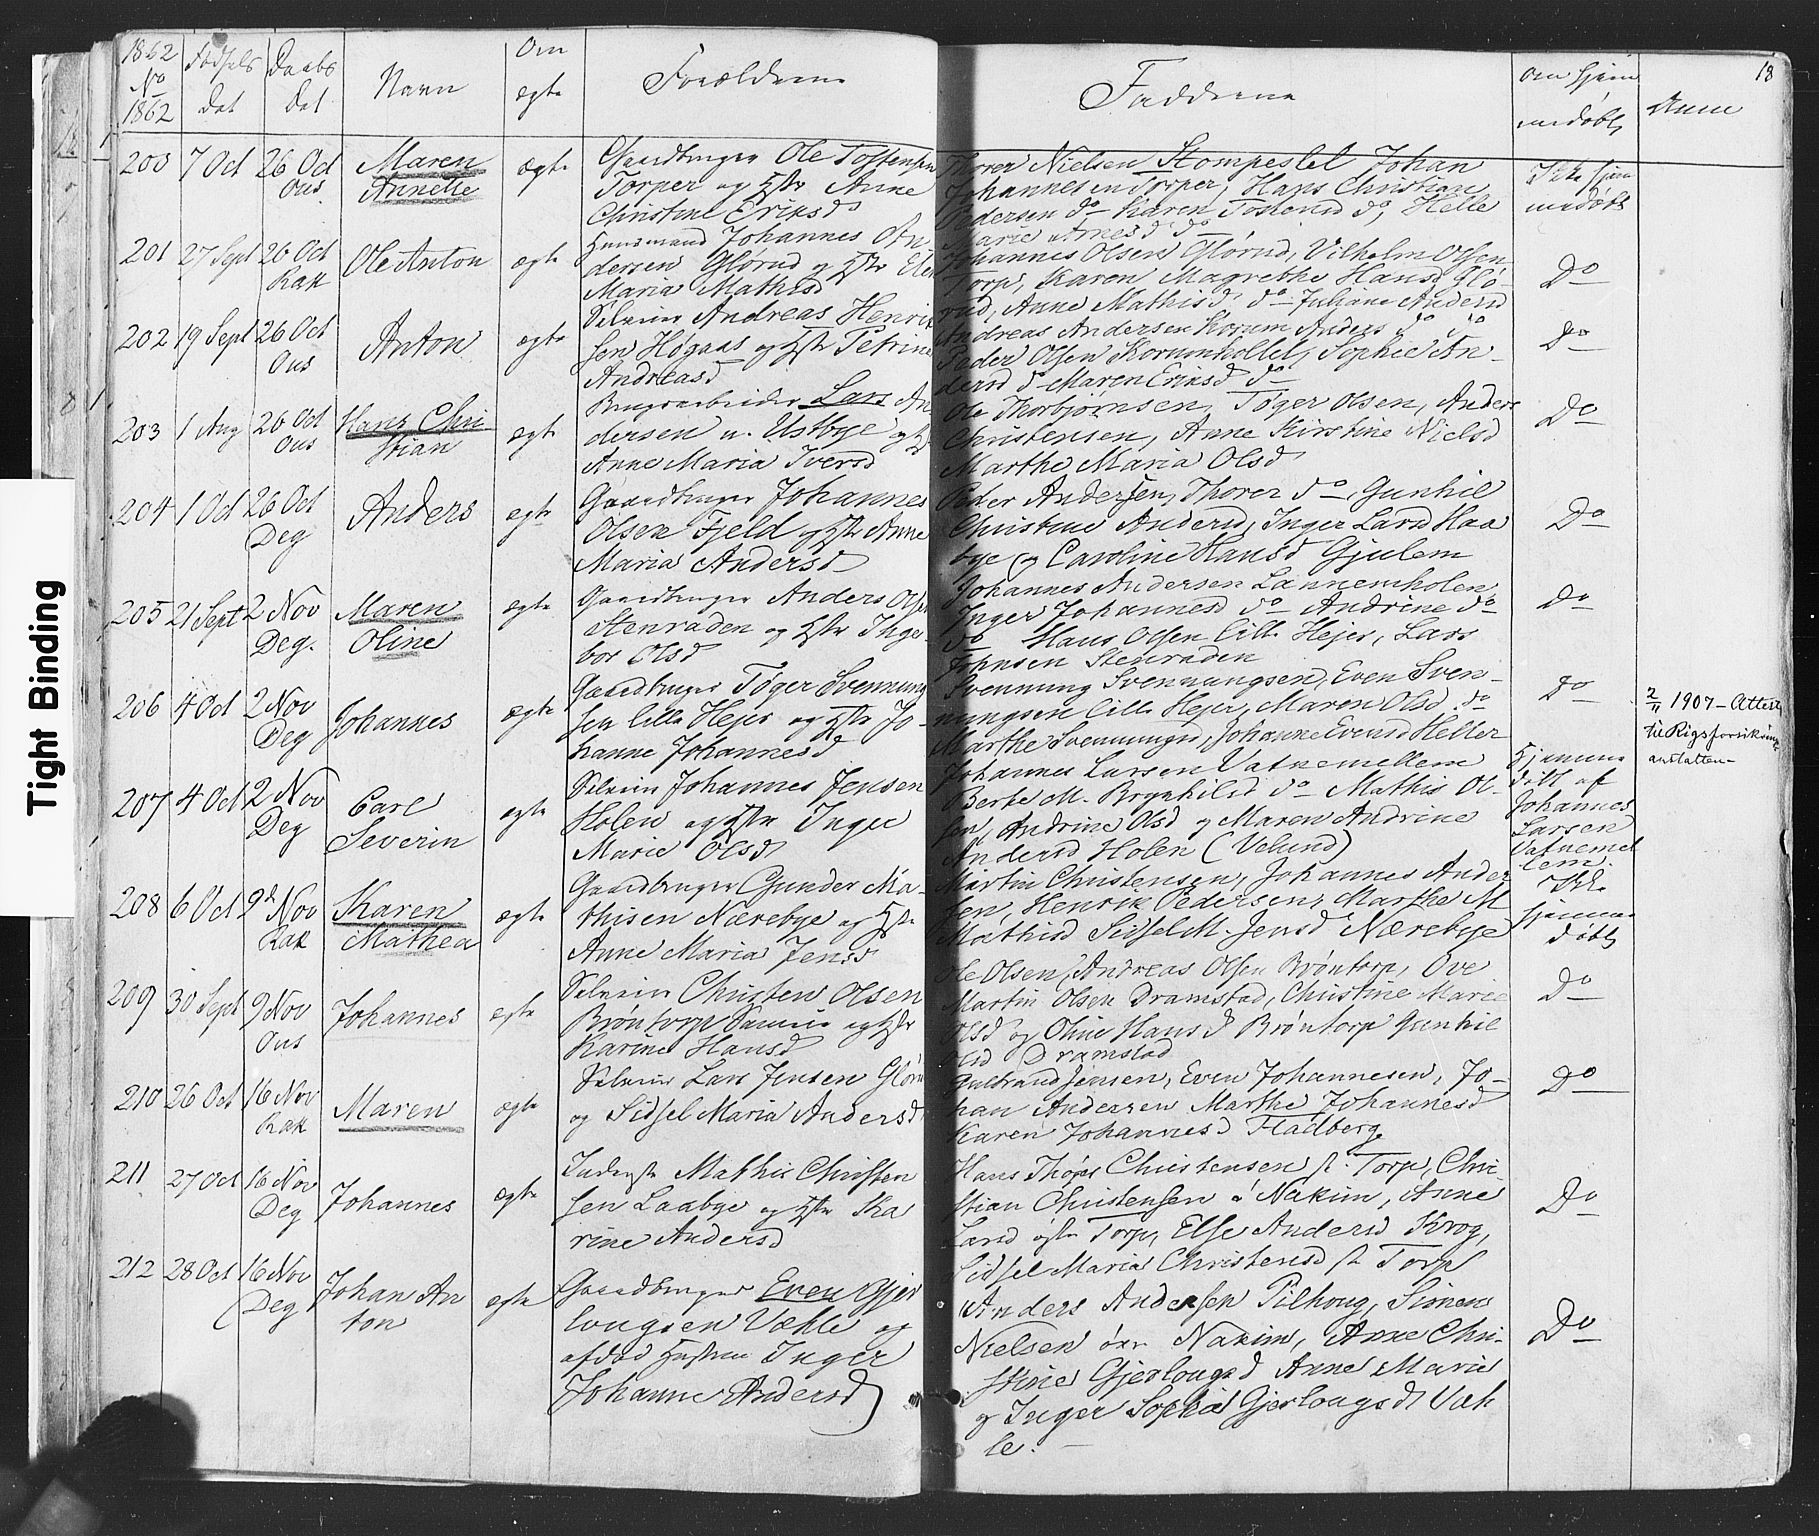 1862
No
1862
Fødsels
Dat
Daabs
Dat
Navn
Om
ægte
Forældrene
Fadderne
om hjem
medøbt
Anm
18
Tight Binding
200 7 Oct 26 Oct
Ous
Maren
Annette
ægte
Gaardbruger Ole Tostensen
Torper og Hstr Anne
Christine Eriksd
Thorer Nielsen Stompeslet Johan
Johannesen Torper, Hans Christian
Pedersen do Karen Tostensd do, Helle
Marie Arnesd do
Ikke hjem
medøbt
201 27 Sept 26 Oct
Rak
Ole Anton
ægte
Huusmand Johannes An
dersen Glørud og Hstr Elen
Maria Mathisd
Johannes Olsen Glørud, Vilhelm Olsen
Torp, Karen Magrethe Hansd Glø-
rud, Anne Mathisd do Juliane Andersd
Do
202 19 Sept 26 Oct
Ous
Anton
ægte
Selveier Andreas Henrik
sen Høgaas og Hstr Petrine
Andreasd
Andreas Andersen Korum Anders do do
Peder Olsen Korumhollet, Sophie An-
dersd do Maren Eriksd do
Do
203 1 Aug 26 Oct
Ous
Hans Chri
stian
ægte
Brugsarbeider Lars An
dersen u. Ustbye og H
Anne Maria Iversd
Ole Thorbjørnsen, Tøger Olsen, Anders
Christensen, Anne Kirstine Nielsd
Marthe Maria Olsd
Do
204 1 Oct 26 Oct
Deg
Anders
ægte
Gaardbruger Johannes
Olsen Fjeld og Hstr Anne
Maria Andersd
Peder Andersen, Thorer do, Gunhil
Christine Andersd, Inger Larsd Haa
bye og Caroline Hansd Gjulem
Do
205 21 Sept 2 Nov
Deg.
Maren
Oline
ægte
Gaardbruger Anders Olsen
Stenraden og Hstr Inge-
bor Olsd
Johannes Andersen Lannemholen
Inger Johannesd do Andrine do
do Hans Olsen lille Hejer, Lars
Johnsen Stenraden
Do
206 4 Oct 2 Nov
Deg
Johannes
ægte
Gaardbruger Tøger Svennung
sen lille Hejer og Hstr Jo-
hanne Johannesd
Svennung Svennungsen, Even Sven-
nungsen lille Hejer, Maren Olsd do
Marthe Svennungsd, Johanne Evensd Heller
Do
2/11 1907 - Attest
til Rigsforsikrings
anstalten -
207 4 Oct 2 Nov
Deg
Carl
Severin
ægte
Selveier Johannes Jensen
Holen og Hstr Inger
Marie Olsd
Johannes Larsen Vatnemellem
Berthe M. Brynhilsd do Mathis Ol-
sen, Andrine Olsd og Maren Andrine
Andersd Holen (Velund)
Hjemme
døbt af
Johannes
Larsen
Vatnemel
lem.
208 6 Oct 9d Nov
Rak
Karen
Mathea
ægte
Gaardbruger Gunder Ma-
thisen Nærebye og Hstr
Anne Maria Jensd
Martin Christensen, Johannes Ander
sen, Henrik Pedersen, Marthe M
Mathisd Sidsel M. Jensd Nærebye
Ikke
hjemme
døbt
209 30 Sept 9 Nov
Ous
Johannes
ægte
Selveier Christen Olsen
Brøntorp Sameie og Hstr
Karine Hansd
Ole Olsen, Andreas Olsen Brøntorp, Ove
Martin Olsen Dramstad, Christine Marie
Olsd og Oline Hansd Brøntorp Gunhil
Olsd Dramstad
Do
210 26 Oct 16 Nov
Rak
Maren
ægte
Selveier Lars Jensen Glørud
og Sidsel Maria Andersd
Gulbrand Jensen, Even Johannesen, Jo-
han Andersen Marthe Johannesd
Karen Johannesd Fladberg
Do
211 27 Oct 16 Nov
Deg
Johannes
ægte
Inderste Mathis Christen
sen Laabye og Hstr Ka
rine Andersd
Hans Thøger Christensen st. Torp, Chri-
stian Christensen ö Nakim, Anne
Larsd østr Torp, Else Andersd Krog,
Sidsel Maria Christensd st Torp
Do
212 28 Oct 16 Nov
Deg
Johan An
ton
ægte
Gaardbruger Even Gjer
lougsen Væhle og
afdød Hustru Inger
Johanne Andersd
Anders Andersen Pilhoug, Simen
Nielsen övr Nakim, Anne Chri-
stine Gjerlougsd Anne Marie
og Inger Sophie Gjerlougsd Væh
le. -
Do